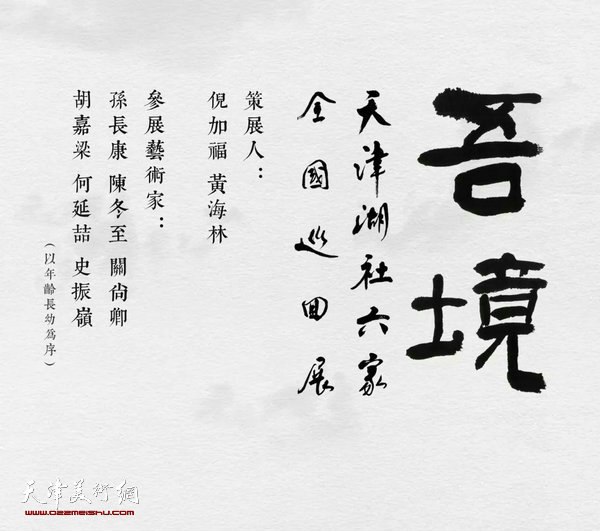 吾境
天津湖社六家
全國巡回展
策展人：
倪加福 黃海林
參展藝術家：
孫長康 陳冬至 關尚卿
胡嘉梁 何延喆 史振嶺
（以年齡長幼為序）
天津美術網
www.022meishu.com